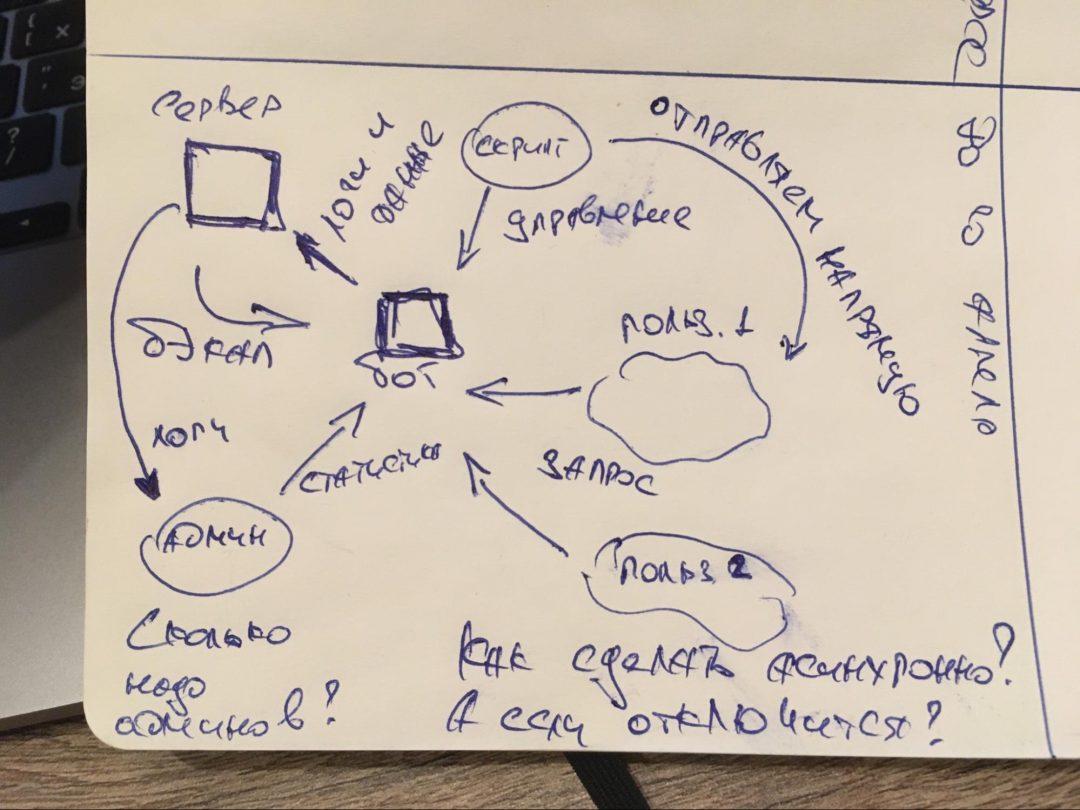 Сервер
логи и
данные
скрипт
отправляем напрямую
управление
бэкап
бот
польз. 1
логи
статистика
запрос
админ
польз 2
Сколько
надо
админов?
Как сделать асинхронно?
А если отключится?